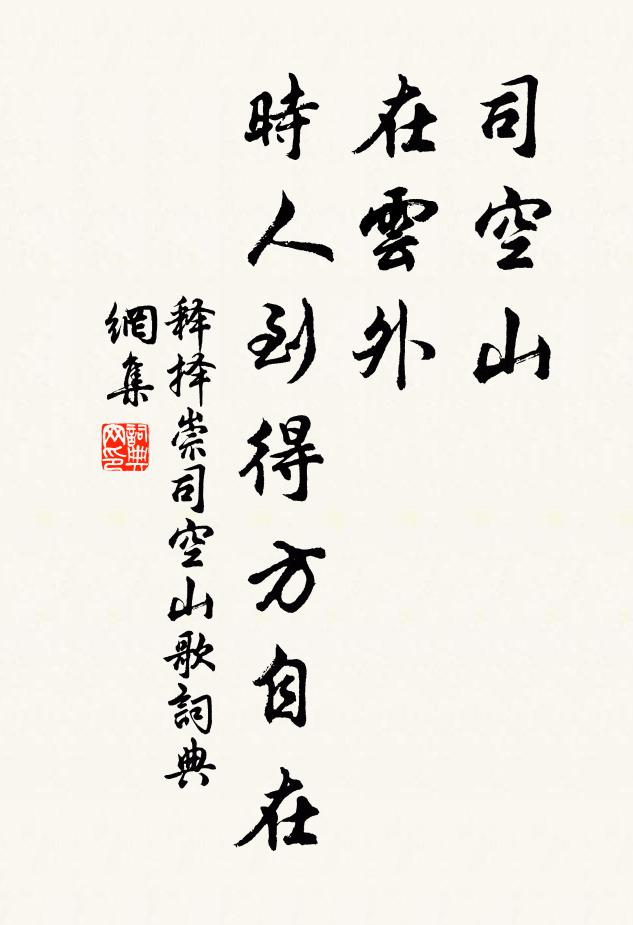 司空山
在雲外
時人到得方自在
释择崇司空山歌詞典
網集
詞典
网印